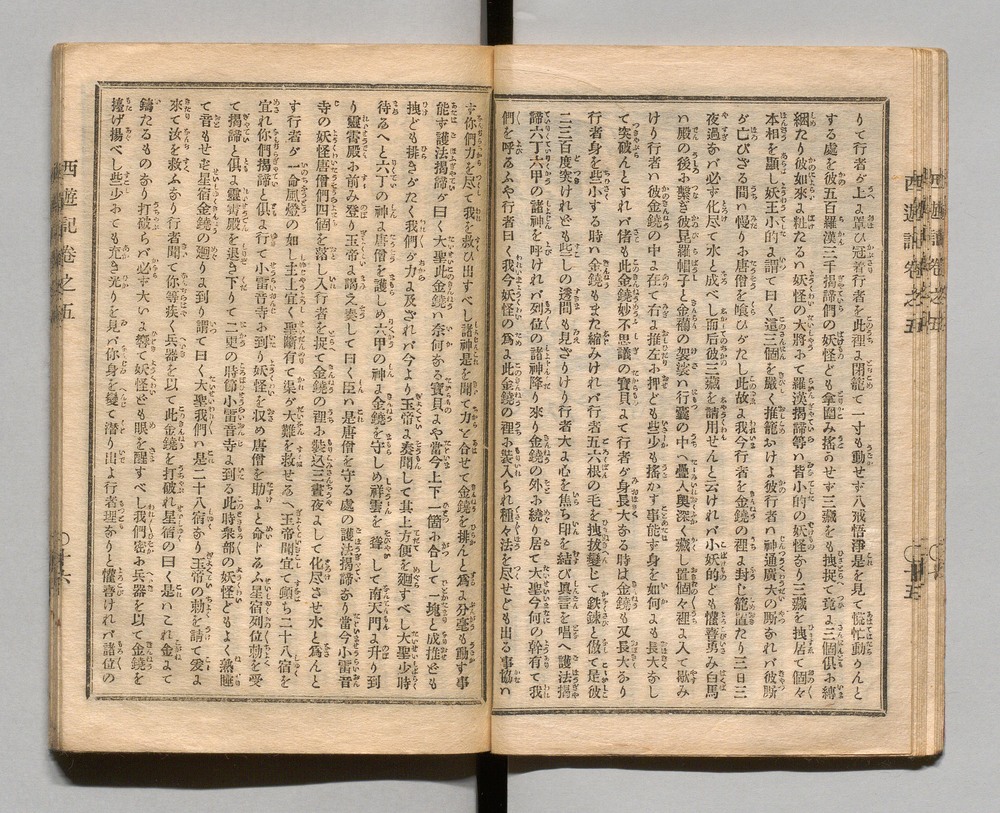 りて行者ゟ上よ罩ひ冠着行者を此裡よ閉籠て一寸も動せず八戒悟淨是を見て慌忙動りんと
する處を彼五百羅漢三千揭諦們の妖怪ども傘圍み搖うせず三藏をも拽捉て竟よ三個俱お縛
綑たり彼如來よ粧たるハ妖怪の大將おて羅漢揭諦等ハ皆小的の妖怪なり三藏を拽居て個々
本相を顯し妖王小的よ謂て曰く這三個を嚴く推籠おけよ彼行者ハ神通廣大の厮なれバ彼厮
ゟ亡びざる間ハ慢りお唐僧を喰ひゟたし此故よ我今行者を金鐃の裡よ封じ籠置たり三日三
夜過なバ必ず化尽て水と成べし而后彼三藏を請用せんと云けれバ小妖的ども懽喜勇み白馬
ハ殿の後お繫ぎ彼毘羅帽子と金襴の袈裟ハ行囊の中へ疊入奧深く藏し置個々裡よ入て歇み
けり行者ハ彼金鐃の中よ在て右よ推左お押ども些少も搖かす事能ず身を如何よも長大なし
て突破んとすれバ偖も此金鐃妙不思議の寶貝よて行者ゟ身長大なる時は金鐃も又長大なり
行者身を些小する時ハ金鐃もまた縮みけれバ行者五六根の毛を拽拔變じて鉄鍊と做て是彼
二三百度突けれども些しの透間も見ざりけり行者大よ心を焦ち印を結び眞言を唱へ護法揭
諦六丁六甲の諸神を呼けれバ列位の諸神降り來り金鐃の外お繞り居て大聖今何の幹有て我
們を呼るふや行者曰く我今妖怪の爲よ此金鐃の裡お裝入られ種々法を尽せども出る事協ハ
ず你們力を尽て我を救ひ出すべし諸神是を聞て力を合せて金鐃を排んと爲よ分毫も動す事
能ず護法揭諦ゟ曰く大聖此金鐃ハ奈何なる寶貝よや當今上下一箇お合して一塊と成推ども
拽ども排きゟたく我們ゟ力よ及されバ今より玉帝よ奏聞して其上方便を廻すべし大聖少時
待るへと六丁の神よ唐僧を護しめ六甲の神よ金鐃を守しめ祥雲を聳して南天門よ升り到
り靈霄殿お前み登り玉帝よ謁之奏して曰く臣ハ是唐僧を守る處の護法揭諦なり當今小雷音
寺の妖怪唐僧們四個を落し入行者を捉て金鐃の裡お裝込三晝夜よして化尽させ水と爲んと
す行者ゟ一命風燈の如し主上宜く聖斷有て渠ゟ大難を救せるへ玉帝聞宜て頓ち二十八宿を
宜れ你們揭諦と俱よ行て小雷音寺お到り妖怪を収め唐僧を助よと命下るふ星宿列位勅を受
て揭諦と俱よ靈霄殿を退き下りて二更の時節小雷音寺よ到る此時衆部の妖怪どもよく熟睡
て音もせず星宿金鐃の廻りよ到り謂て曰く大聖我們ハ是二十八宿なり玉帝の勅を請て爰よ
來て汝を救ふなり行者聞て你等疾く兵器を以て此金鐃を打破れ星宿の曰く是ハこれ金よて
鑄たるものなり打破らバ必ず大いよ響て妖怪ども眼を醒すべし我們密お兵器を以て金鐃を
撬げ揚べし些少おても亮き光りを見バ你身を變て潛り出よ行者理なりと懽喜けれバ諸位の
西遊記卷之五
〇二十五
西遊記卷之五
〇二十六